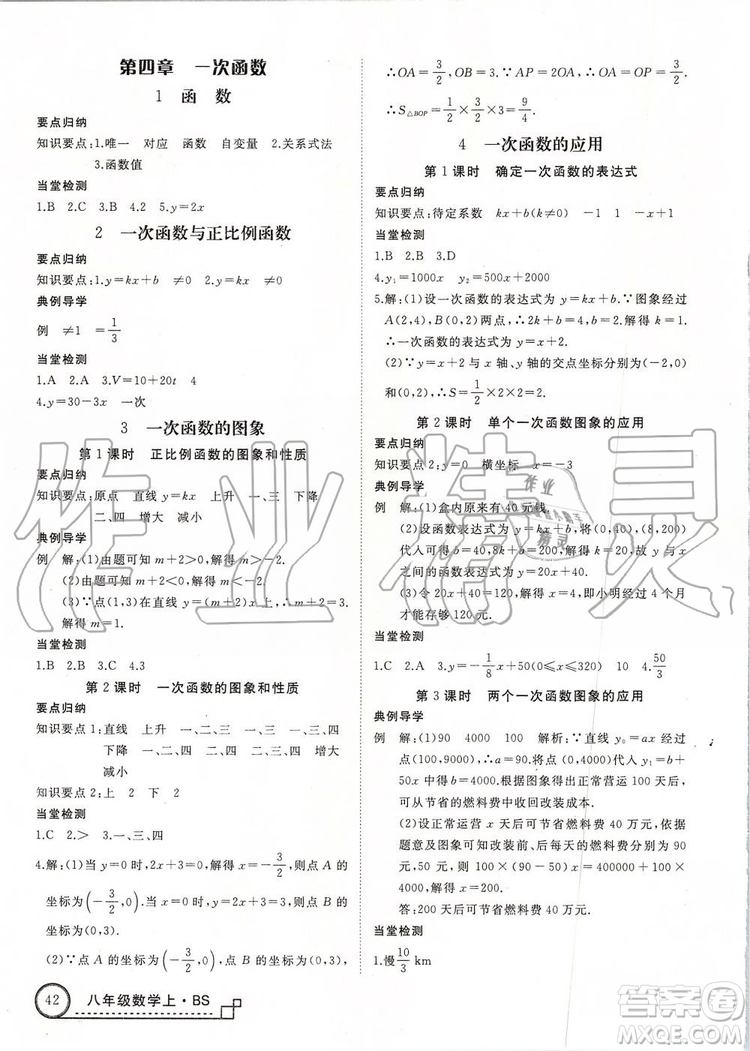 第四章 一次函数
1 函 数
要点归纳
知识要点:1.唯一 对应 函数 自变量 2.关系式法
3.函数值
当堂检测
1.B 2.C 3.A 4.2 5.y=2x
2 一次函数与正比例函数
要点归纳
知识要点:1.y=kx+b ≠0 2.y=kx ≠0
典例导学
例 ≠1 =1/3
当堂检测
1.A 2.A 3.V=10+20t 4
4.y=30-3x 一次
3 一次函数的图象
第1课时 正比例函数的图象和性质
要点归纳
知识要点:原点 直线 y=kx 上升 一、三 下降
二、四 增大 减小
典例导学
例 解:(1)由题可知 m+2>0,解得 m>-2.
(2)由题可知 m+2<0,解得 m<-2.
(3)∵点(1,3)在直线 y=(m+2)x 上,∴m+2=3.
解得 m=1.
当堂检测
1.B 2.B 3.C 4.3
第2课时 一次函数的图象和性质
要点归纳
知识要点1:直线 上升 一、二、三 一、三 一、三、四
下降 一、二、四 二、四 二、三、四 增大
减小
知识要点2:上 2 下 2
当堂检测
1.C 2.> 3.一、三、四
4.解:(1)当 y=0 时,2x+3=0,解得 x=-3/2,则点 A 的
坐标为(-3/2,0).当 x=0 时,y=3,则点 B 的
坐标为(0,3).
(2)∵点 A 的坐标为(-3/2,0),点 B 的坐标为(0,3),
∴OA=3/2,OB=3.∵AP=2OA,∴OP=OA=3/2.
∴S△BOP=1/2×3/2×3=9/4.
4 一次函数的应用
第1课时 确定一次函数的表达式
要点归纳
知识要点:待定系数 kx+b(k≠0) -1 1 -x+1
当堂检测
1.B 2.B 3.D
4.y₁=1000x y₂=500x+2000
5.解:(1)设一次函数的表达式为 y=kx+b.∵图象经过
A(2,4),B(0,2)两点,∴b=2,2k+b=4.解得 k=1.
∴一次函数的表达式为 y=x+2.
(2)∵y=x+2 与 x 轴、y 轴的交点坐标分别为(-2,0)
和(0,2),∴S=1/2×2×2=2.
第2课时 单个一次函数图象的应用
要点归纳
知识要点2:y=0 横坐标 x=-3
典例导学
例 解:(1)盒内原来有40元钱.
(2)设函数表达式为 y=kx+b,将(0,40),(8,200)
代入可得 b=40,8k+b=200.解得 k=20.∴y 与 x 之
间的函数表达式为 y=20x+40.
(3)令20x+40=120,解得 x=4,即小明经过4个月
才能存够120元.
当堂检测
1.C 2.A 3.y=-1/8x+50(0≤x≤400) 4.50/3
第3课时 两个一次函数图象的应用
典例导学
例 解:(1)90 4000 100 解析:设直线 y₀=ax 经过点
(100,9000),∴y₀=90x.∵直线 y₁=kx+b 经过点
(0,4000)和(100,9000),∴y₁=50x+4000.∴改装
一辆车费用为4000元.根据图象得出正常营运100天后,
可从节省的燃料费中收回改装成本.
(2)设正常运营 x 天后可节省燃料费40万元,依
题意及图象可知改装前、后的燃料费每天分别为90
元,50元,则100×(90-50)x=400000+100×4000,
解得 x=200.
答:200天后可节省燃料费40万元.
当堂检测
1.慢 10/3 km
42 八年级数学上·BS
作业精灵
作业
精灵
答案圈
MXQE.COM